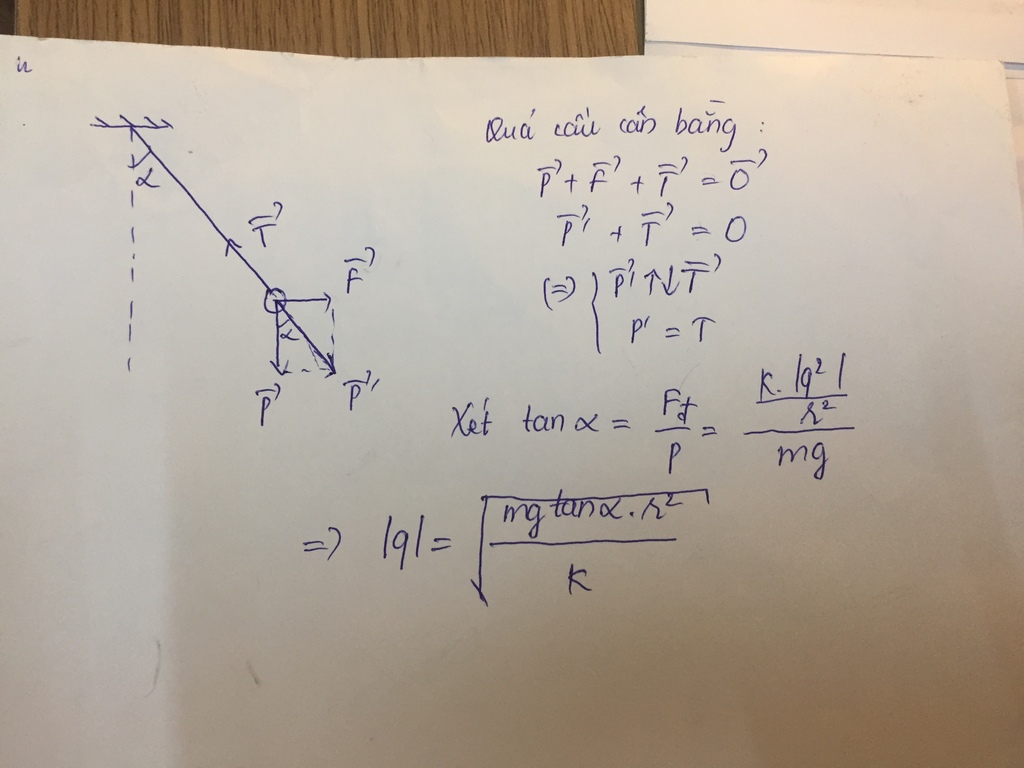 α
T⃗
F⃗
P⃗
α
P⃗'
Quả cầu cân bằng :
P⃗ + F⃗ + T⃗ = 0⃗
P⃗' + T⃗ = 0
(=) { P⃗' ↑↓ T⃗
P' = T
Xét tan α = Fđ/P = (k.|q²|/r²)/mg
=> |q| = √(mg tanα . r²/k)